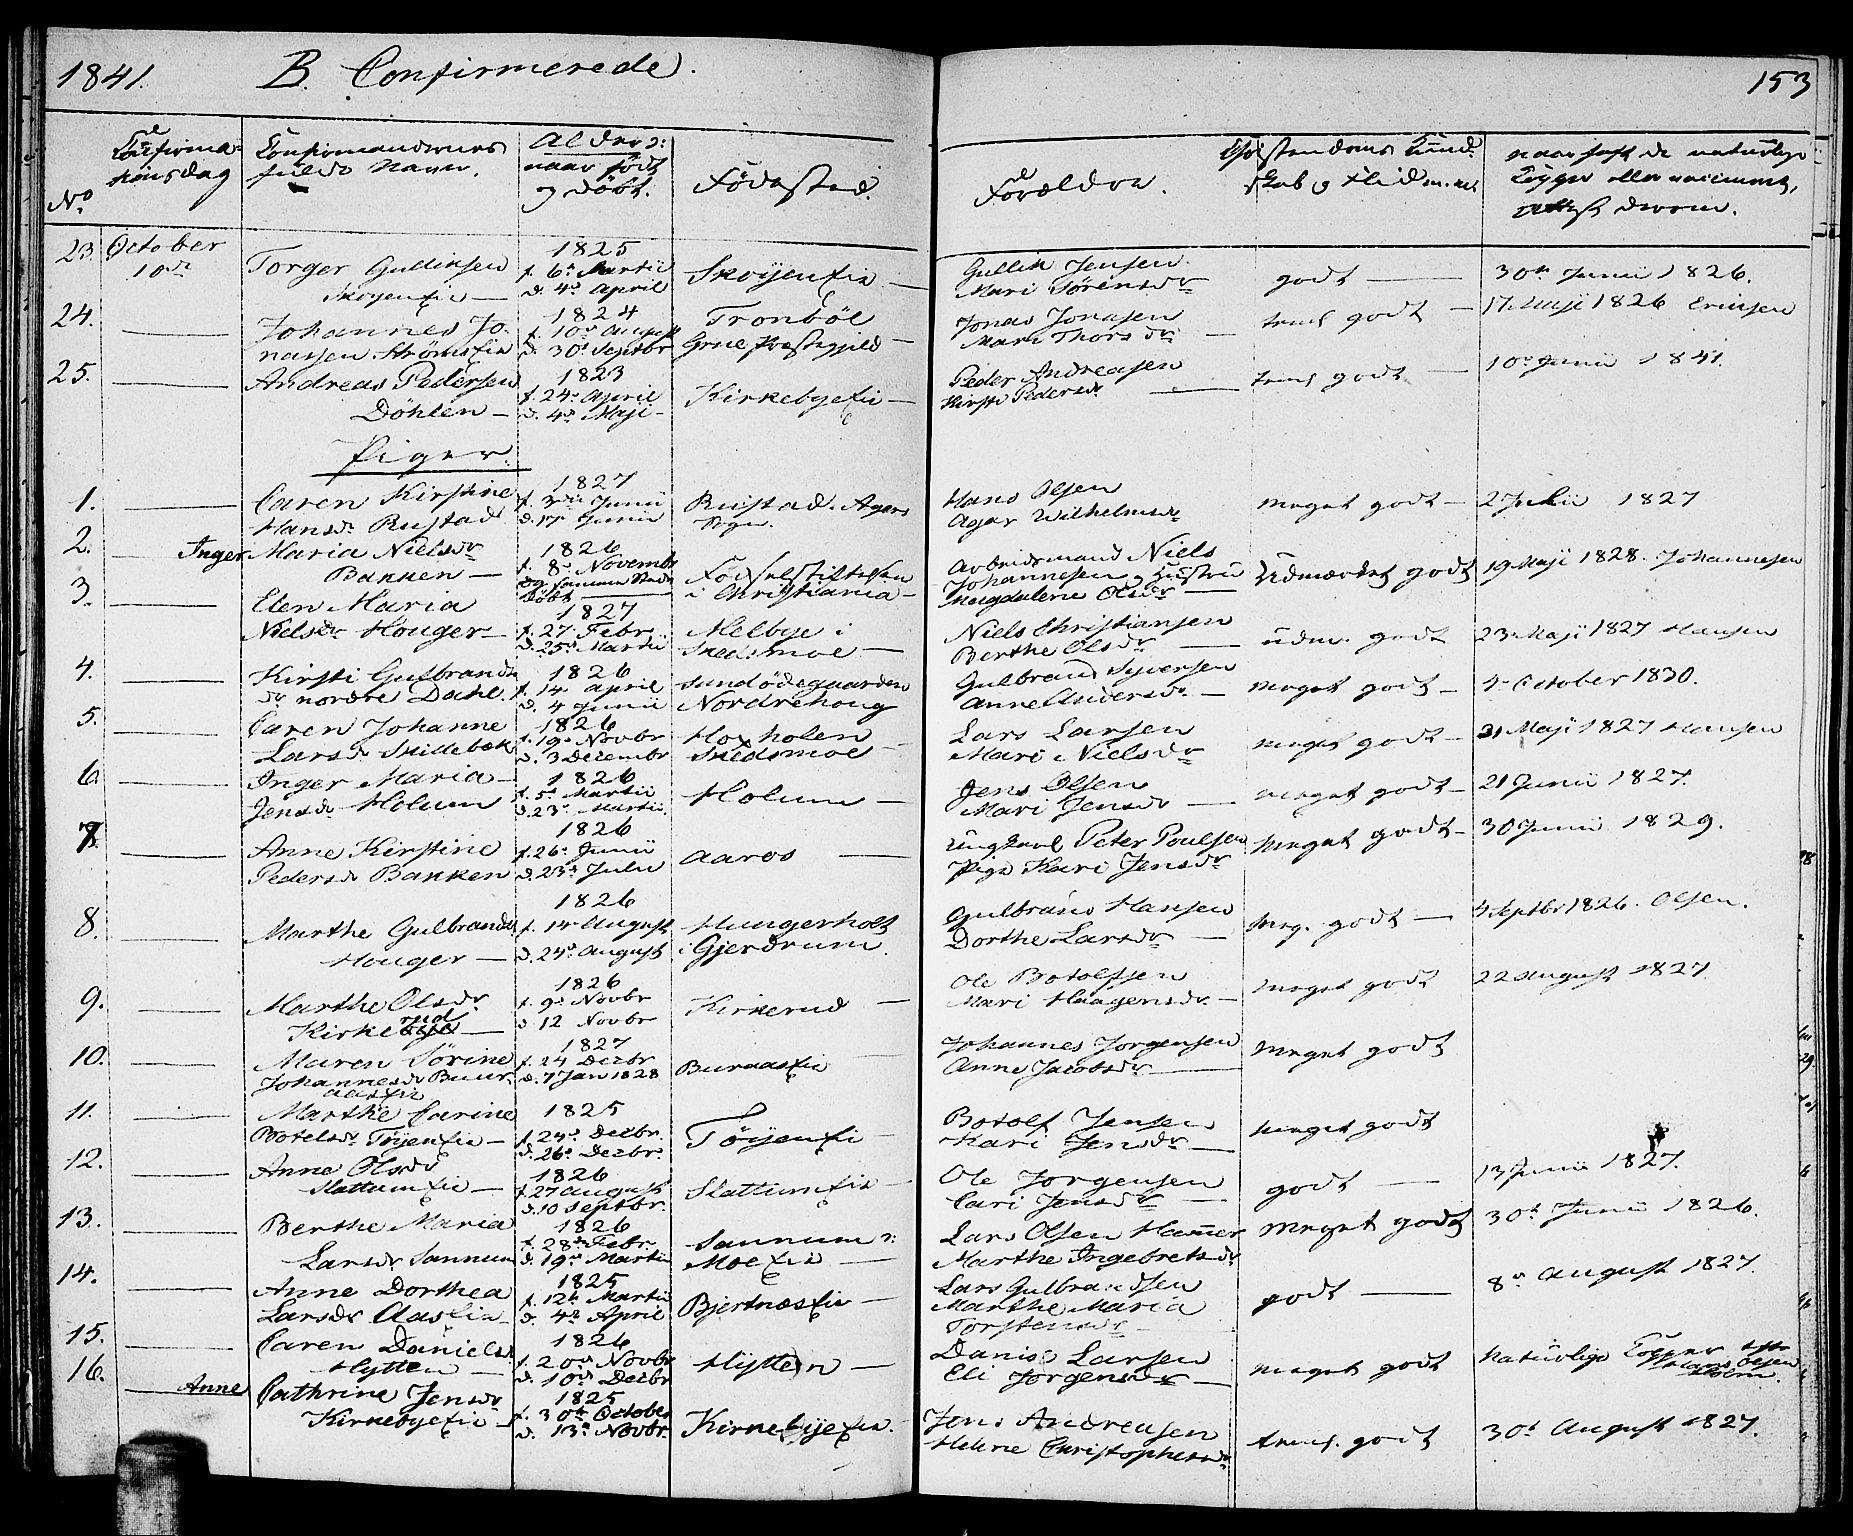 1841. B. Confirmerede. 153
No Confirmationsdag Confirmandernes fulde Navn. Alder: naar født og døbt. Fødested. Forældre. Christendoms Kundskab og Flid m. m. naar haft de naturlige Kopper eller vaccineret, Attest derom.
23. October 10de Torger Gulliksen Skøyeneie — 1825 f. 6te Martii d. 4de April Skøyeneie — Gullik Jensen Mari Sørensdr godt — 30te Junii 1826.
24. — Johannes Jonassen Strømseie 1824 f. 10de August d. 30te Septbr Tronbøl Grue Præstegjeld — Jonas Jonasen Mari Thorsdr — teml godt — 17 Maji 1826 Eriksen
25. — Andreas Pedersen Döhlen — 1823 f. 24de April d. 4de Maji — Kirkebyeeie — Peder Andreasen Kirsti Pedersdr — temd godt — 10de Junii 1841.
Piger.
1. — Caren Kirstine Hansdr Rustad 1827 f. 3die Junii d. 17 Junii Rustad. Agers Sogn. Hans Olsen Agar Wilhelmsdr meget godt — 2 Julii 1827
2. — Inger Maria Nielsdr Bakken — 1826 f. 8de Novembr og samme Steds døbt — Fødselstiftelsen i Christiania — Arbeidsmand Niels Johannesen og Hustru Magdalene Olsdr — Udmærket godt 19 Maji 1828. Johannesen
3. — Elen Maria Nielsdr Houger — 1827 f. 27 Febr. d. 25de Martii Melbye i Skedsmoe — Niels Christiansen Berthe Olsdr — udm. godt 23 Maji 1827 Hansen
4. — Kirsti Gulbrandsdr nordre Dahl. 1826 f. 14 April d. 4 Junii Sundødegaarden Nordrehoug Gulbrand Syversen Anne Andersdr — meget godt — 4 October 1830.
5. — Caren Johanne Larsdr Skillebæk 1826 f. 19de Novbr d. 3 Decembr Moxholen Skedsmoe — Lars Larsen Mari Nielsdr meget godt — 31 Maji 1827 Hansen
6. — Inger Maria — Jensdr Holum 1826 f. 5te Martii d. 23de Martii. Holum — Jens Olsen Mari Jensdr — meget godt — 21 Junii 1827.
7. — Anne Kirstine Pedersdr Bakken 1826 f. 26de Junii d. 23de Julii Aaros — Ungkarl Peter Poulsen Pige Kari Jensdr meget godt — 30 Junii 1829.
8. — Marthe Gulbrandsdr Houger — 1826 f. 14 August d. 24de August Hungerholt i Gjerdrum. Gulbrand Hansen Dorthe Larsdr — meg. godt — 4 Septbr 1826. Olsen.
9. — Marthe Olsdr Kirkerud — 1826 f. 9de Novbr d. 12 Novbr Kirkerud — Ole Botolfsen Mari Haagensdr — meget godt 22 August 1827.
10. — Maren Sørine Johannesdr Buuraaseie 1827 f. 24 Decbr d. 7 Jan 1828 Buraaseie — Johannes Jorgensen Anne Jacobsdr — meget godt
11. — Marthe Carine Botelsdr Tøyeneie — 1825 f. 24de Decbr. d. 26de Decbr. Tøyenei — Botolf Jensen Kari Jensdr — meget godt
12. — Anne Olsdr Slattumeie — 1826 f. 27 August d. 10 Septbr. Slattumeie — Ole Jorgensen Cari Jensdr — godt — 13 Junii 1827.
13. — Berthe Maria Larsdr Sannum 1826 f. 28de Febr. d. 19de Martii Sannum : Moeeie — Lars Olsen Hammer Marthe Ingebretsdr Meget godt 30te Junii 1826.
14. — Anne Dorthea Larsdr Aaseie — 1825 f. 12te Martii d. 4de April Bjertnæseie — Lars Gulbrandsen Marthe Maria Torstensdr — godt — 8de August 1827.
15. — Caren Danielsdr Hytten — 1826 f. 20de Novbr d. 10de Decbr Hytten — Daniel Larsen Eli Jorgensdr — meget godt Naturlige Kopper Hans Olsen
16. — Anne Cathrine Jensdr Kirkebyeeie — 1825 f. 30te October d. 13de Novbr. Kirkebyeeie. Jens Andreasen Helene Christophersdr temd. godt 30te August 1827.